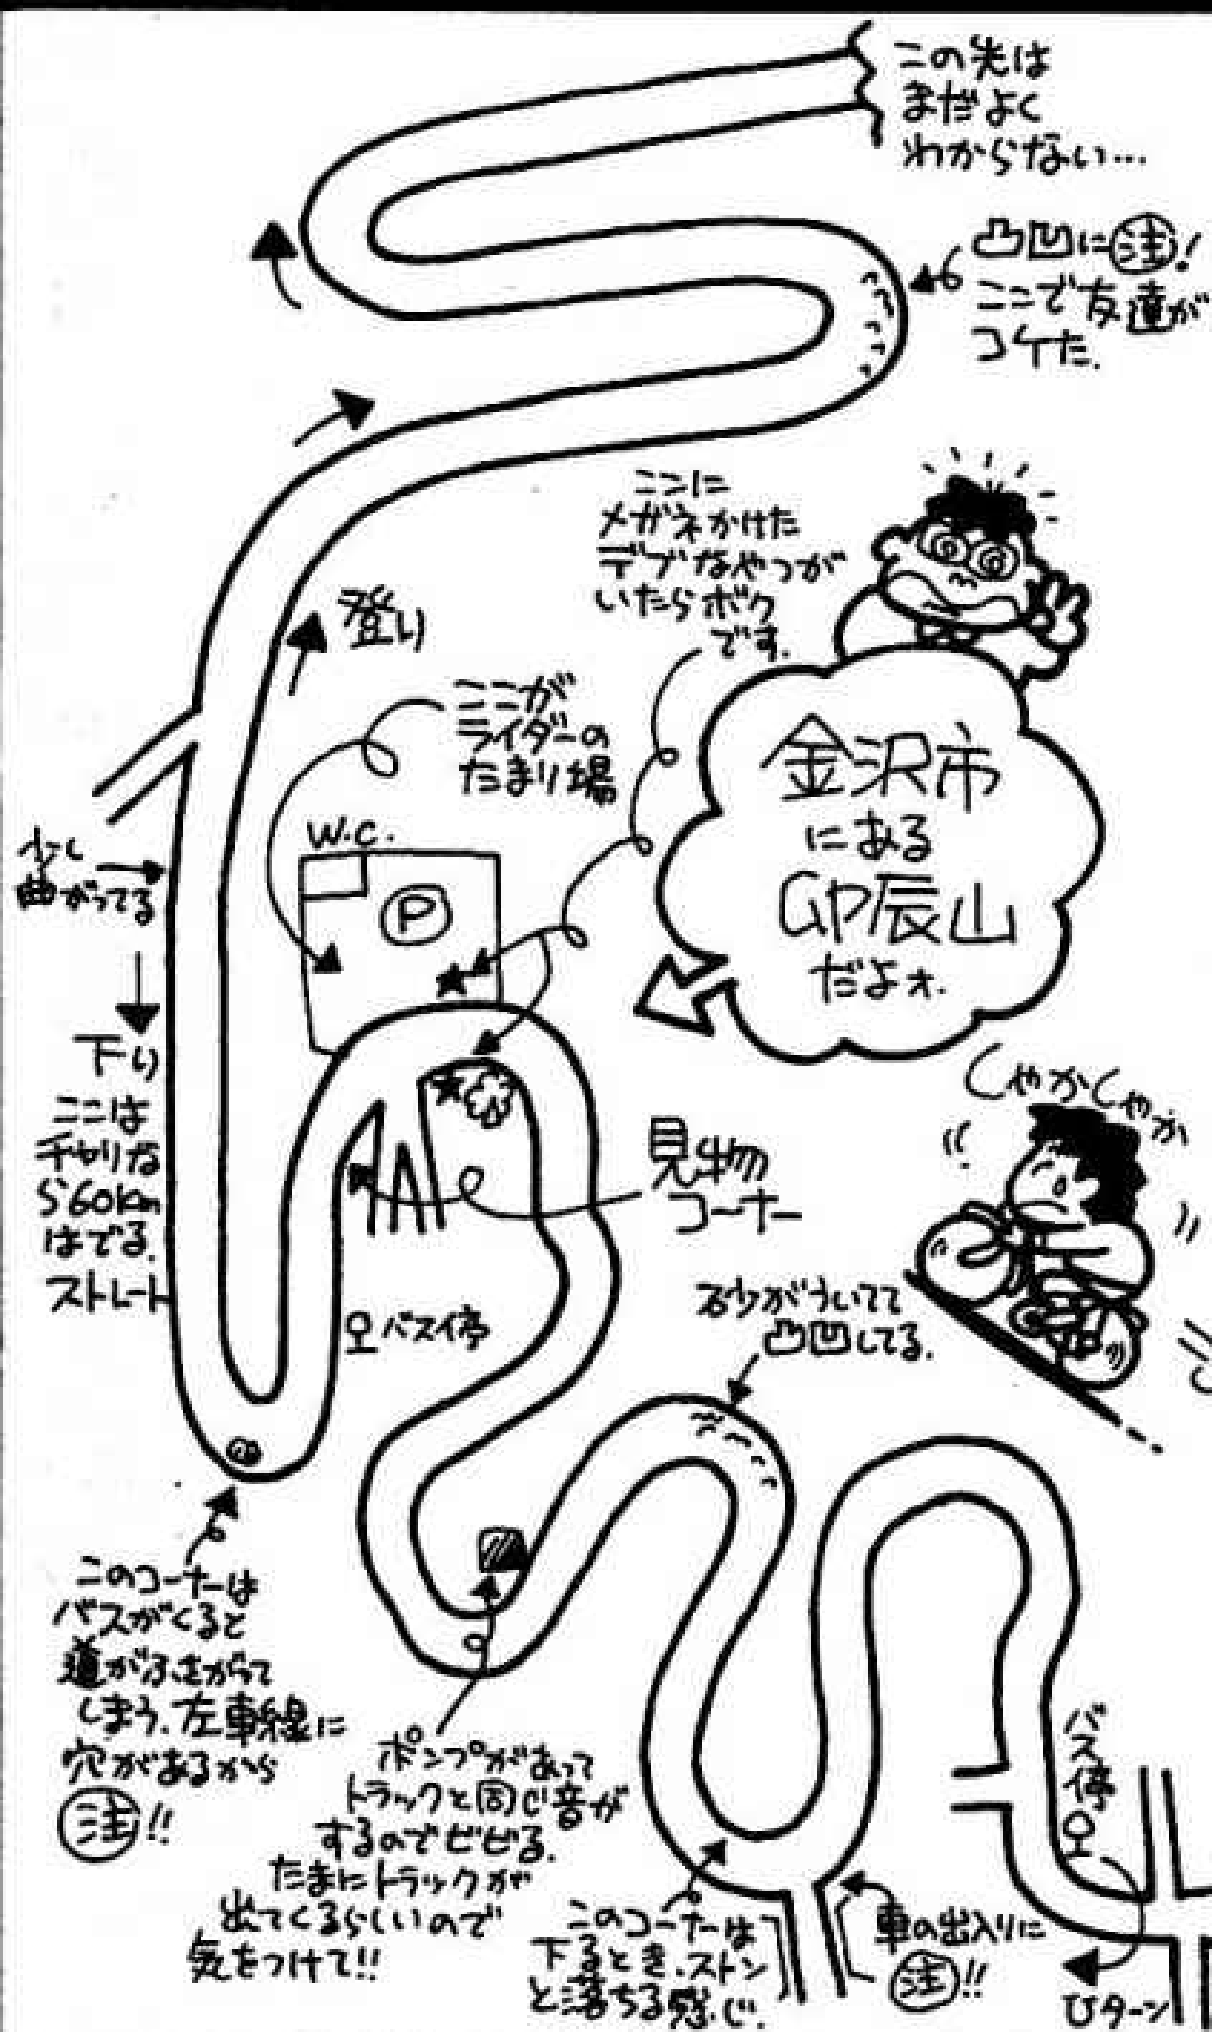 この先は
まだよく
わからない…
凸凹に㊟!
ここで友達が
コケた.
ここに
メガネかけた
デブなやつが
いたらボク
です.
登り
ここが
ライダーの
たまり場
W.C.
P
金沢市
にある
卯辰山
だよォ.
少し
曲がってる
下り
ここは
チャリな
ら60km
はでる.
ストレート
見物
コーナー
しゃかしゃか
バス停
砂がういてて
凸凹してる.
このコーナーは
バスがくると
道がふさがって
しまう.左車線に
穴があるから
㊟!!
ポンプがあって
トラックと同じ音が
するのでビビる.
たまにトラックが
出てくるらしいので
気をつけて!!
このコーナーは
下るとき.ストン
と落ちる感じ.
車の出入りに
㊟!!
バス停
Uターン